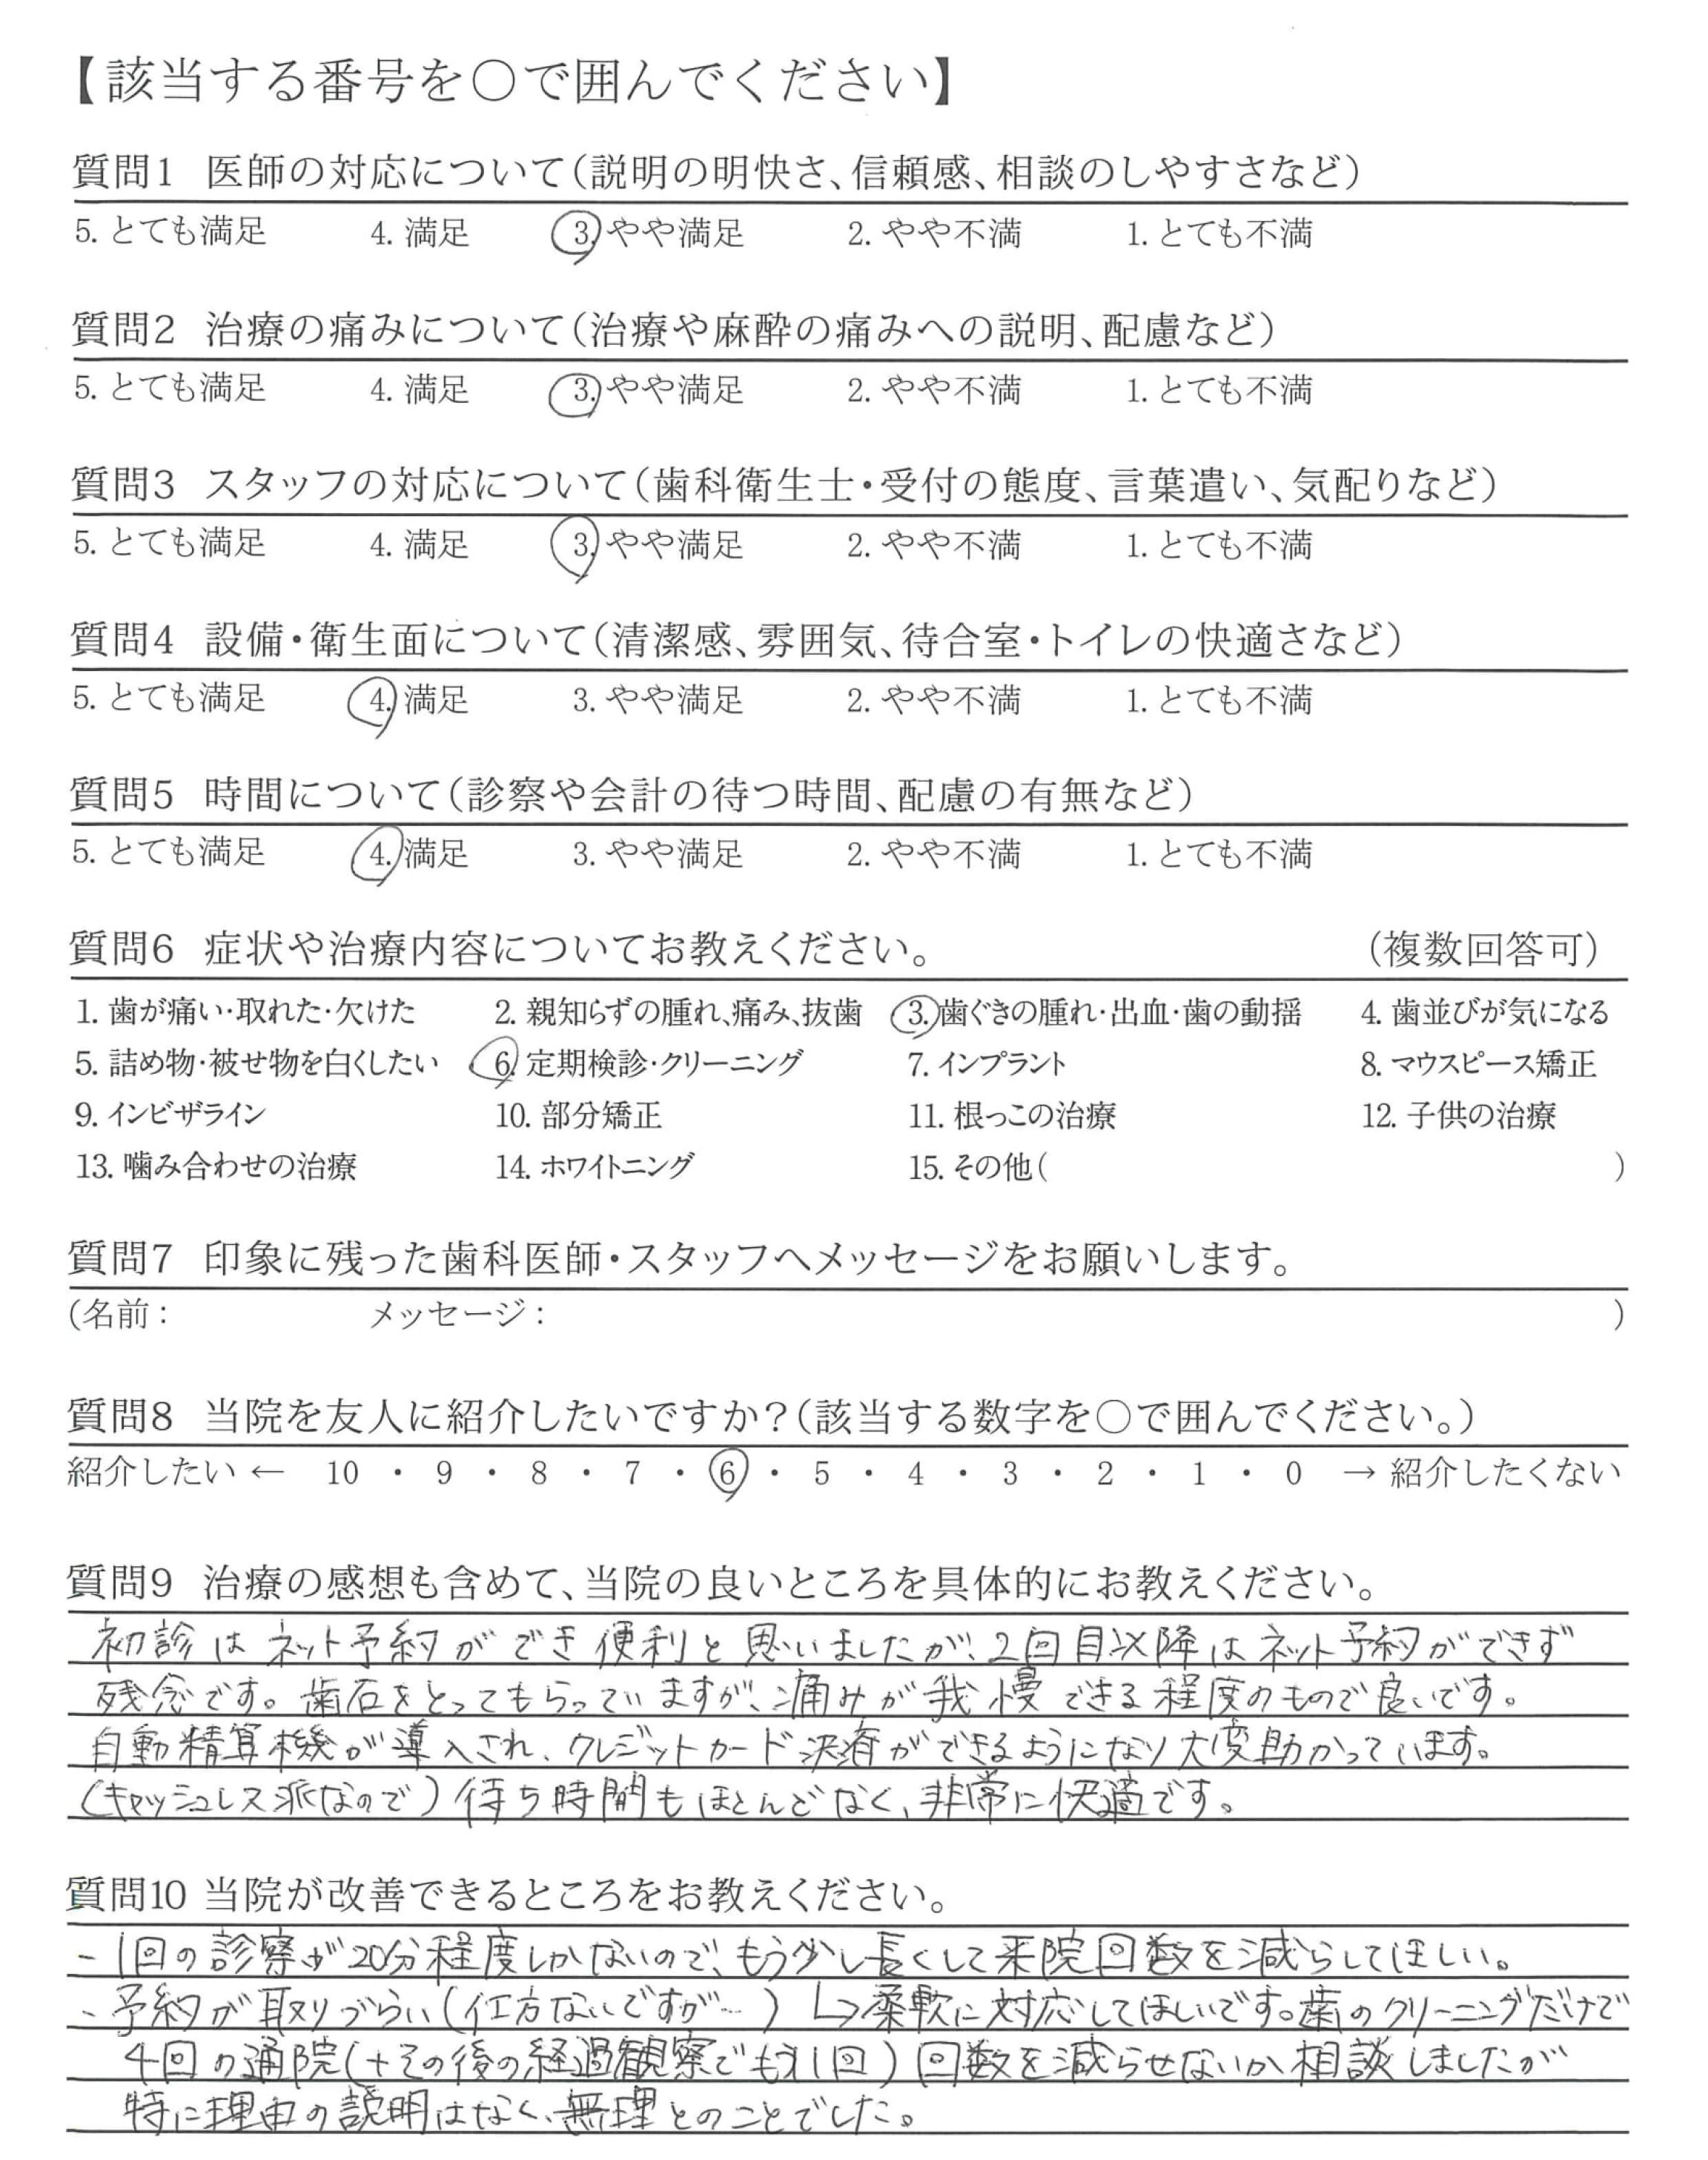 【該当する番号を○で囲んでください】
質問1 医師の対応について(説明の明快さ、信頼感、相談のしやすさなど)
5. とても満足 4. 満足 3. やや満足 2. やや不満 1. とても不満
質問2 治療の痛みについて(治療や麻酔の痛みへの説明、配慮など)
5. とても満足 4. 満足 3. やや満足 2. やや不満 1. とても不満
質問3 スタッフの対応について(歯科衛生士・受付の態度、言葉遣い、気配りなど)
5. とても満足 4. 満足 3. やや満足 2. やや不満 1. とても不満
質問4 設備・衛生面について(清潔感、雰囲気、待合室・トイレの快適さなど)
5. とても満足 4. 満足 3. やや満足 2. やや不満 1. とても不満
質問5 時間について(診察や会計の待つ時間、配慮の有無など)
5. とても満足 4. 満足 3. やや満足 2. やや不満 1. とても不満
質問6 症状や治療内容についてお教えください。 (複数回答可)
1. 歯が痛い・取れた・欠けた 2. 親知らずの腫れ、痛み、抜歯 3. 歯ぐきの腫れ・出血・歯の動揺 4. 歯並びが気になる
5. 詰め物・被せ物を白くしたい 6. 定期検診・クリーニング 7. インプラント 8. マウスピース矯正
9. インビザライン 10. 部分矯正 11. 根っこの治療 12. 子供の治療
13. 噛み合わせの治療 14. ホワイトニング 15. その他( )
質問7 印象に残った歯科医師・スタッフへメッセージをお願いします。
(名前: メッセージ: )
質問8 当院を友人に紹介したいですか?(該当する数字を○で囲んでください。)
紹介したい ← 10 ・ 9 ・ 8 ・ 7 ・ 6 ・ 5 ・ 4 ・ 3 ・ 2 ・ 1 ・ 0 → 紹介したくない
質問9 治療の感想も含めて、当院の良いところを具体的にお教えください。
初診はネット予約ができ便利と思いましたが、2回目以降はネット予約ができず
残念です。歯石をとってもらっていますが、痛みが我慢できる程度のもので良いです。
自動精算機が導入され、クレジットカード決済ができるようになり大変助かっています。
(キャッシュレス派なので)待ち時間もほとんどなく、非常に快適です。
質問10 当院が改善できるところをお教えください。
- 1回の診察が20分程度しかないので、もう少し長くして来院回数を減らしてほしい。
- 予約が取りづらい(仕方ないですが…) ↳柔軟に対応してほしいです。歯のクリーニングだけで
4回の通院(+その後の経過観察でもう1回)回数を減らせないか相談しましたが
特に理由の説明はなく、無理とのことでした。